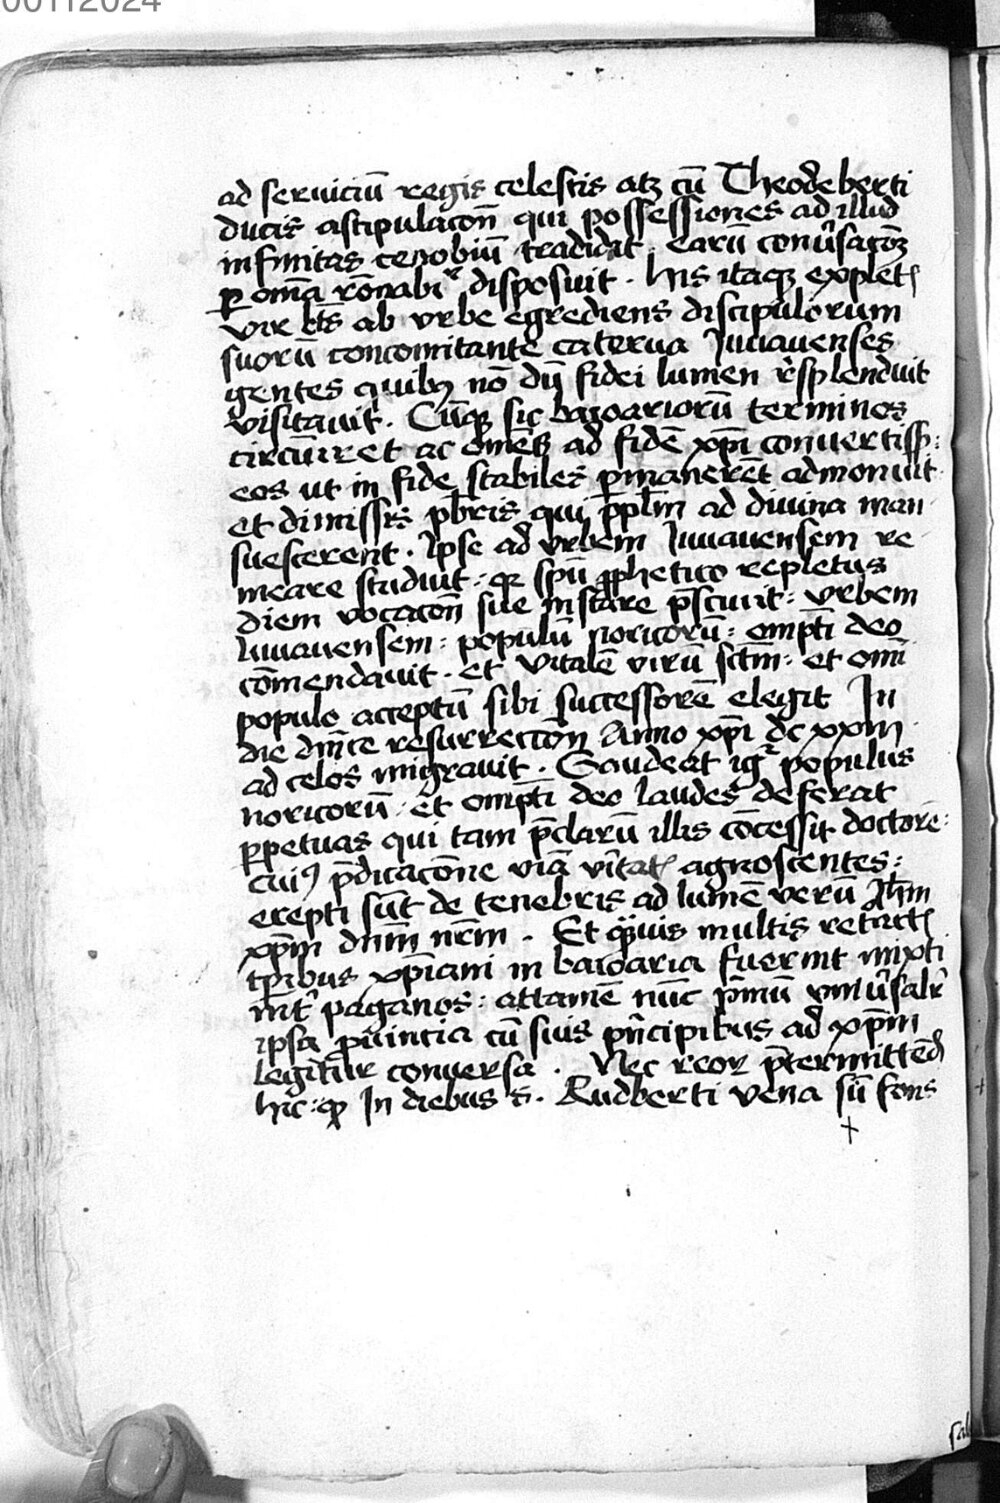 00112024
ad seruiciū regis celestis atq̄ cū Theodeberti
ducis astipulacōn̄ qui possessiones ad illud
infinitas cenobiū tradidit . earū conūsacōȝ
ꝑ om̄ia rōnabilr̄ disposuit . his itaqȝ explet
vir bt̄s ab vrbe egrediens discipulorum
suorū concomitante caterua Iuuauenses
gentes quibȝ nō dū fidei lumen r̄splenduit
visitauit . Cūqȝ sic baioariorū terminos
circūiret ac om̄es ad fidē xp̄i conuertissȝ :
eos ut in fide stabiles ꝑmanerēt admonuit
et dimissis pb̄ris qui pp̄lm ad diuina man
suescerent . Ipse ad vrbem Iuuauensem re
meare studuit : qr spū ꝓphetico repletus
diem vocacōn̄ sue instare p̄sciuit : vrbem
Iuuauensem : populū noricorū : omp̄ti deo
cōmendauit . et vitalē virū sct̄m : et om̄i
populo acceptū sibi successorē elegit In
die dn̄ice resurrectiōn Anno xp̄i dc xxiii
ad celos migrauit . Gaudeat igr̄ populus
noricorū . et omp̄ti deo laudes deferat
ꝑpetuas qui tam p̄clarū illis cōcessit doctorē :
cuiꝰ p̄dicacōne viā v̄itat agnoscentes :
erepti sūt de tenebris ad lumē verū Ih̄m
xp̄m dn̄m nr̄m . Et qͣuis multis retract
tp̄ibus xp̄iani in baioaria fuerint mixti
int̄ paganos : attamē nūc p̄mū vniūsalr̄
ipsa ꝓuincia cū suis p̄ncipibus ad xp̄m
legitur conuersa . Nec reor p̄termittēd
hic : qꝫ In diebus s̄ . Rudberti vena sū fons
sal